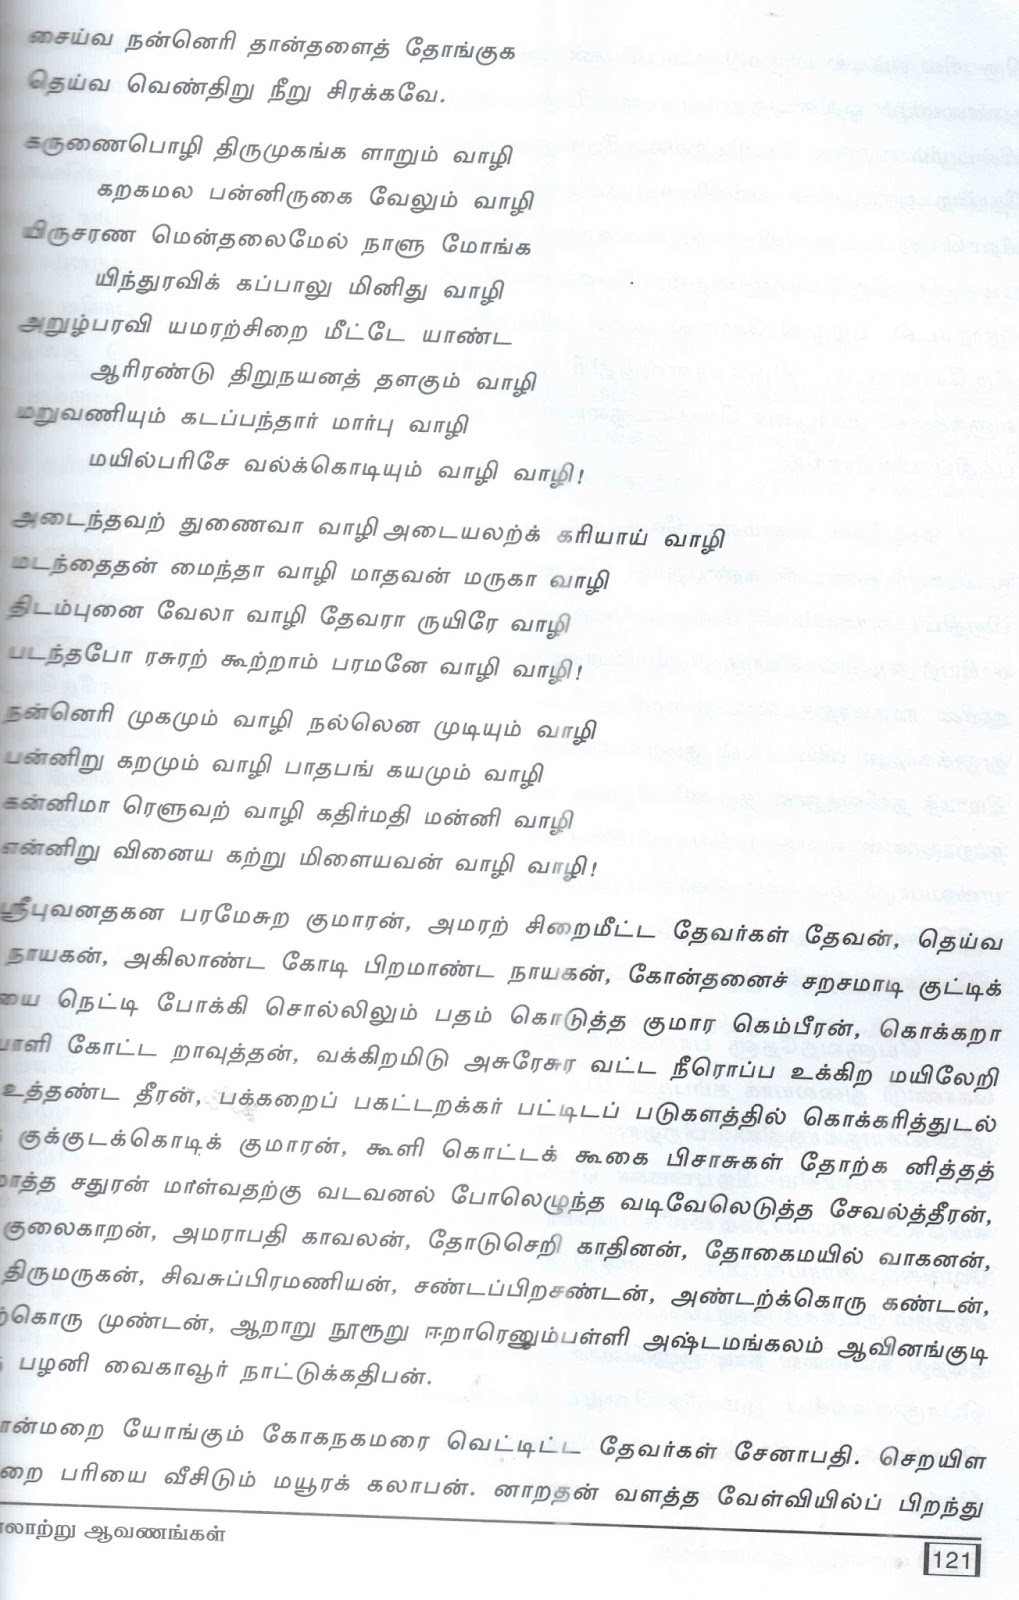 சைய்வ நன்னெரி தான்தளைத் தோங்குக
தெய்வ வெண்திரு நீறு சிரக்கவே.
கருணைபொழி திருமுகங்க ளாறும் வாழி
கறகமல பன்னிருகை வேலும் வாழி
யிருசரண மென்தலைமேல் நாளு மோங்க
யிந்துரவிக் கப்பாலு மினிது வாழி
அறுழ்பரவி யமரற்சிறை மீட்டே யாண்ட
ஆரிரண்டு திறுநயனத் தளகும் வாழி
மறுவணியும் கடப்பந்தார் மார்பு வாழி
மயில்பரிசே வல்க்கொடியும் வாழி வாழி!
அடைந்தவற் துணைவா வாழி அடையலற்க் கரியாய் வாழி
மடந்தைதன் மைந்தா வாழி மாதவன் மருகா வாழி
திடம்புனை வேலா வாழி தேவரா ருயிரே வாழி
படந்தபோ ரசுரற் கூற்றாம் பரமனே வாழி வாழி!
நன்னெரி முகமும் வாழி நல்லென முடியும் வாழி
பன்னிறு கறமும் வாழி பாதபங் கயமும் வாழி
கன்னிமா ரெளுவற் வாழி கதிர்மதி மன்னி வாழி
என்னிறு வினைய கற்று மிளையவன் வாழி வாழி!
ஸ்ரீபுவனதகன பரமேசுற குமாரன், அமரற் சிறைமீட்ட தேவர்கள் தேவன், தெய்வ
நாயகன், அகிலாண்ட கோடி பிறமாண்ட நாயகன், கோன்தனைச் சறசமாடி குட்டிக்
யை நெட்டி போக்கி சொல்லிலும் பதம் கொடுத்த குமார கெம்பீரன், கொக்கறா
வாளி கோட்ட றாவுத்தன், வக்கிறமிடு அசுரேசுர வட்ட நீரொப்ப உக்கிற மயிலேறி
உத்தண்ட தீரன், பக்கறைப் பகட்டறக்கர் பட்டிடப் படுகளத்தில் கொக்கரித்துடல்
குக்குடக்கொடிக் குமாரன், கூளி கொட்டக் கூகை பிசாசுகள் தோற்க னித்தத்
மாத்த சதுரன் மாள்வதற்கு வடவனல் போலெழுந்த வடிவேலெடுத்த சேவல்த்தீரன்,
குலைகாறன், அமராபதி காவலன், தோடுசெறி காதினன், தோகைமயில் வாகனன்,
திருமருகன், சிவசுப்பிரமணியன், சண்டப்பிறசண்டன், அண்டற்க்கொரு கண்டன்,
ற்கொரு முண்டன், ஆறாறு நூரூறு ஈறாரெனும்பள்ளி அஷ்டமங்கலம் ஆவினங்குடி
பழனி வைகாவூர் நாட்டுக்கதிபன்.
ான்மறை யோங்கும் கோகநகமரை வெட்டிட்ட தேவர்கள் சேனாபதி. செறயிள
றை பரியை வீசிடும் மயூரக் கலாபன். னாறதன் வளத்த வேள்வியில்ப் பிறந்து
லாற்று ஆவணங்கள்
121